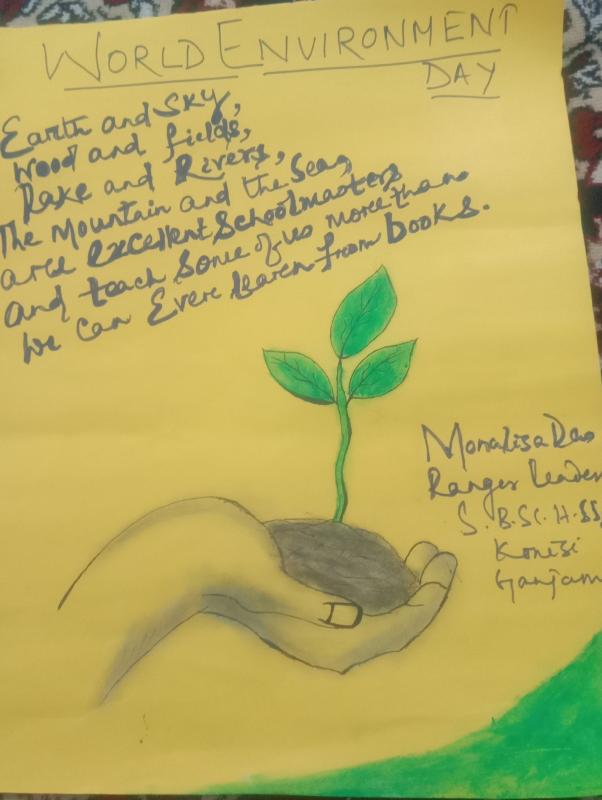 WORLD ENVIRONMENT
DAY
Earth and Sky,
wood and fields,
Lake and Rivers,
The Mountain and the Sea,
are excellent Schoolmasters
and teach Some of us more than
we can Evere learen from books.
Monalisa Das
Ranger Leader
S.B.SC.H.SS
Konisi
Ganjam